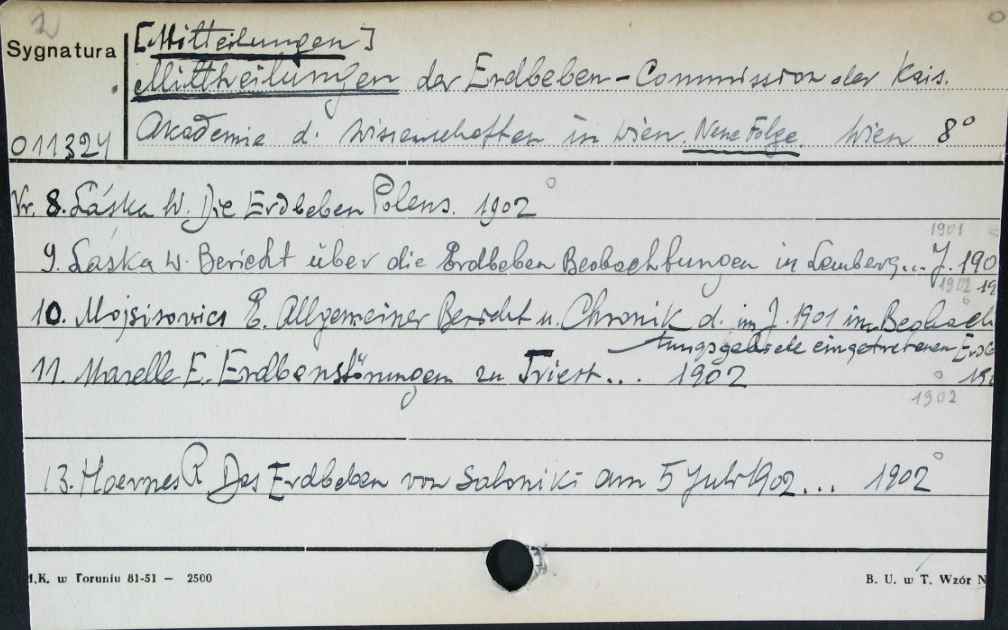 2
Sygnatura [Mitteilungen]
Mittheilungen der Erdbeben-Commission der Kais.
011324 Akademie d. Wissenschaften in Wien. Neue Folge. Wien 8°
Nr. 8. Láska W. Die Erdbeben Polens. 1902
1901
9. Láska W. Bericht über die Erdbeben Beobachtungen in Lemberg... J. 190
1902 19
10. Mojsisovics E. Allgemeiner Bericht u. Chronik d. im J. 1901 im Beobach
tungsgebiete eingetretenen Erdb
11. Mazelle E. Erdbenstörungen zu Triest... 1902 190
1902
13. Hoernes R Das Erdbeben von Saloniki am 5 Juli 1902... 1902
M.K. w Toruniu 81-51 — 2500 B. U. w T. Wzór N